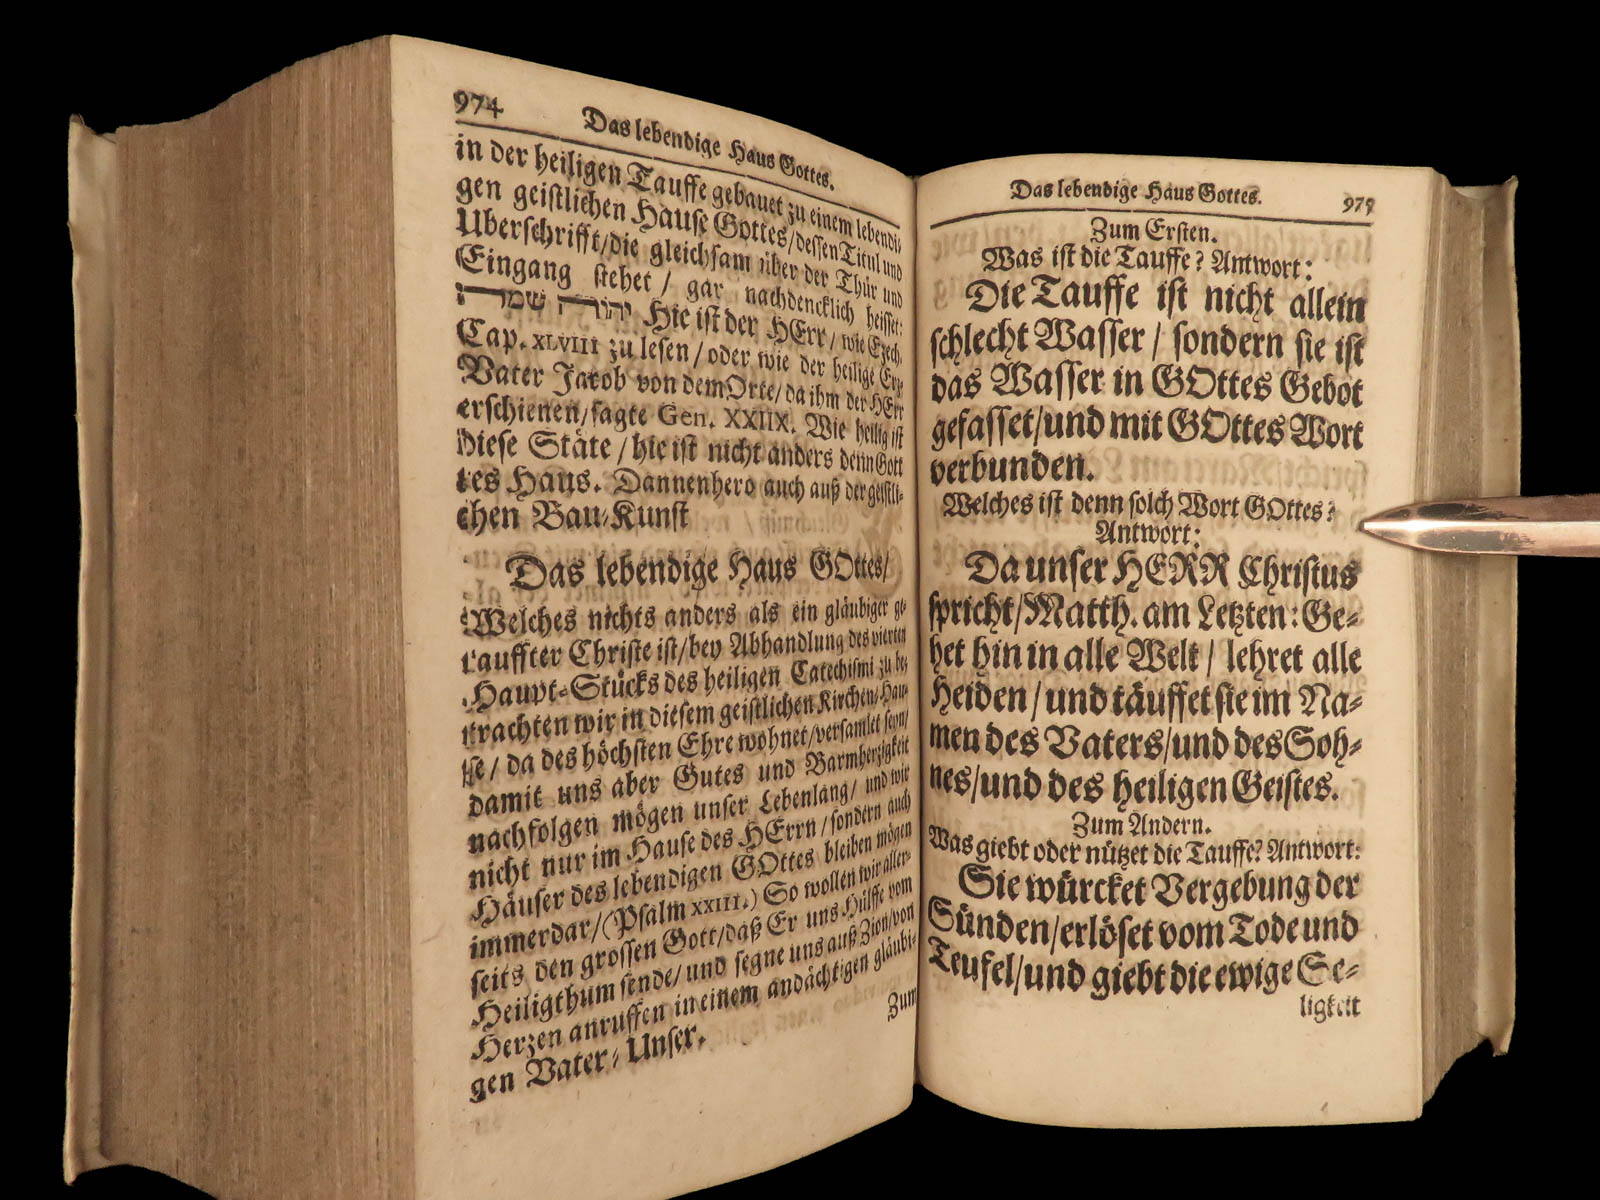 974
Das lebendige Haus Gottes.
in der heiligen Tauffe gebauet zu einem lebendi-
gen geistlichen Hause Gottes/dessen Titul und
Uberschrifft/die gleichsam über der Thür und
Eingang stehet/ gar nachdencklich heisset:
יהוה שמה Hie ist der HErr/ wie Ezech.
Cap. XLVIII zu lesen/oder wie der heilige Ertz-
Vater Jacob von dem Orte/da ihm der HErr
erschienen/sagte Gen. XXIIX. Wie heilig ist
diese Stäte/hie ist nicht anders denn Gott
tes Haus. Dannenhero auch auß der geistli-
chen Bau-Kunst
Das lebendige Haus GOttes/
Welches nichts anders als ein gläubiger ge-
tauffter Christe ist/bey Abhandlung des vierten
Haupt-Stücks des heiligen Catechismi zu be-
trachten wir in diesem geistlichen Kirchen-Hau-
se/ da des höchsten Ehre wohnet/versamlet seyn/
damit uns aber Gutes und Barmhertzigkeit
nachfolgen mögen unser Lebenlang/ und wir
nicht nur im Hause des HErrn/sondern auch
Häuser des lebendigen GOttes bleiben mögen
immerdar/(Psalm XXIII.) So wollen wir aller-
seits den grossen Gott/daß Er uns Hülffe vom
Heiligthum sende/und segne uns auß Zion/von
Herzen anruffen in einem andächtigen gläubi-
gen Vater-Unser.
Zum
Das lebendige Haus Gottes.
975
Zum Ersten.
Was ist die Tauffe? Antwort:
Die Tauffe ist nicht allein
schlecht Wasser/ sondern sie ist
das Wasser in GOttes Gebot
gefasset/und mit GOttes Wort
verbunden.
Welches ist denn solch Wort GOttes?
Antwort:
Da unser HERR Christus
spricht/Matth. am Letzten: Ge-
het hin in alle Welt/ lehret alle
Heiden/und täuffet sie im Na-
men des Vaters/und des Soh-
nes/und des heiligen Geistes.
Zum Andern.
Was giebt oder nützet die Tauffe? Antwort:
Sie würcket Vergebung der
Sünden/erlöset vom Tode und
Teufel/und giebt die ewige Se-
ligkeit